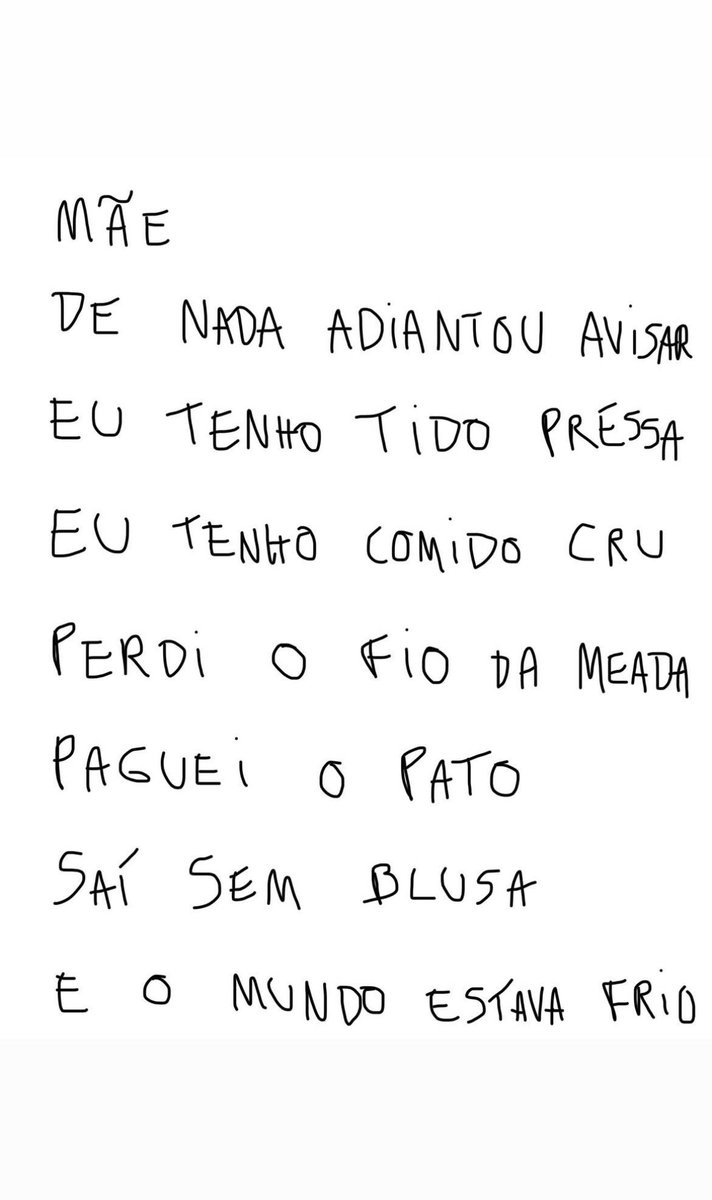 MÃE
DE NADA ADIANTOU AVISAR
EU TENHO TIDO PRESSA
EU TENHO COMIDO CRU
PERDI O FIO DA MEADA
PAGUEI O PATO
SAÍ SEM BLUSA
E O MUNDO ESTAVA FRIO